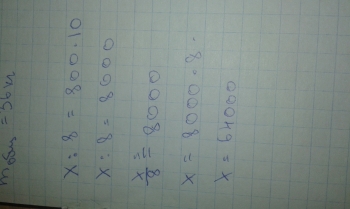 = 36 кг
x : 8 = 800 · 10
x : 8 = 8000
x/8 = 8000
x = 8000 · 8
x = 64000